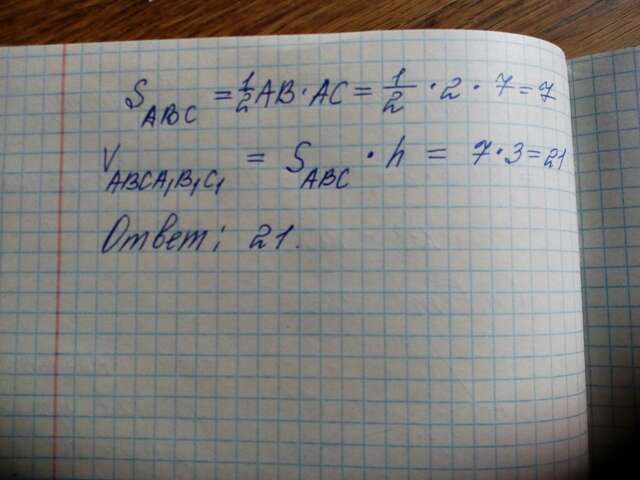 S_ABC = 1/2 AB · AC = 1/2 · 2 · 7 = 7
V_ABCA₁B₁C₁ = S_ABC · h = 7 · 3 = 21
Ответ: 21.